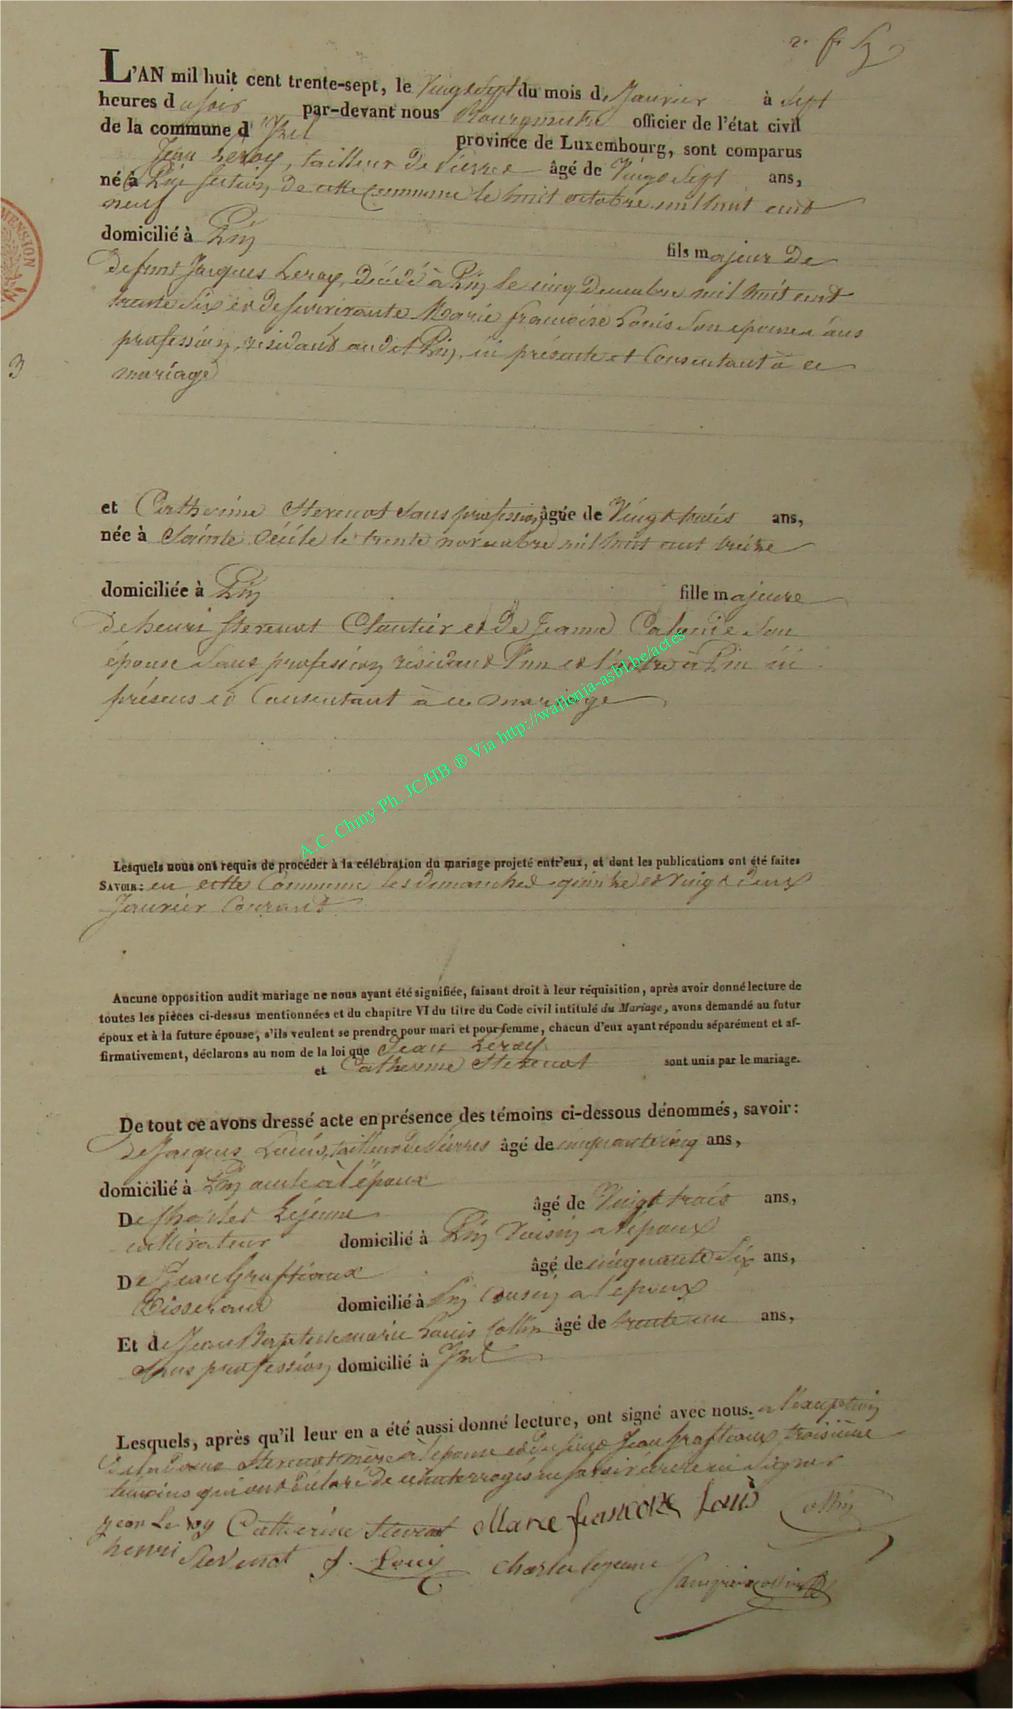 L'AN mil huit cent trente-sept, le Vingt Sept du mois de Janvier à Sept
heures du soir par-devant nous Bourgmestre officier de l'état civil
de la commune d'Izel province de Luxembourg, sont comparus
Jean Leroy, tailleur de Pierres âgé de Vingt Sept ans,
né à Pin Section de cette Commune le huit octobre mil huit cent
neuf
domicilié à Pin fils majeur de
defunt Jacques Leroy, décédé à Pin le cinq Decembre mil huit cent
trente Six et de survivante Marie françoise Louis Son epouse sans
profession, residant audit Pin, ici présente et Consentant à ce
mariage
3
et Catherine Stevenot sans profession âgée de Vingt trois ans,
née à Sainte Cécile le trente novembre mil huit cent treize
domiciliée à Pin fille majeure
de henri Stevenot Cloutier et de Jeanne Son
épouse Sans profession residant l'un et l'autre à Pin ici
présens et Consentant à ce mariage
A.C. Chiny Ph. JC/HB ® Via http://wallonia-asbl.be/actes
Lesquels nous ont requis de procéder à la célébration du mariage projeté entr'eux, et dont les publications ont été faites
SAVOIR: en cette Commune les dimanches quinze et vingt deux
Janvier Courant
Aucune opposition audit mariage ne nous ayant été signifiée, faisant droit à leur réquisition, après avoir donné lecture de
toutes les pièces ci-dessus mentionnées et du chapitre VI du titre du Code civil intitulé du Mariage, avons demandé au futur
époux et à la future épouse, s'ils veulent se prendre pour mari et pour femme, chacun d'eux ayant répondu séparément et af-
firmativement, déclarons au nom de la loi que Jean Leroy
et Catherine Stevenot sont unis par le mariage.
De tout ce avons dressé acte en présence des témoins ci-dessous dénommés, savoir:
De Jacques Louis, tailleur de Pierres âgé de cinquante cinq ans,
domicilié à Pin oncle à l'époux
De Charles Lejeune âgé de Vingt trois ans,
cultivateur domicilié à Pin Voisin a l'époux
De Jean Graftiaux âgé de cinquante Six ans,
Tisserand domicilié à Pin Cousin a l'époux
Et de Jean Baptiste marie Louis Collin âgé de trente un ans,
Sans profession domicilié à Izel
Lesquels, après qu'il leur en a été aussi donné lecture, ont signé avec nous. a l'exception
de la Stevenot mère a l'épouse et du Jean Graftiaux troisième
témoins qui ont déclaré de ce interrogés ne savoir écrire ni Signer
jean Le roy Catherine Stevenot Marie françoise Louis Collin
henri Stevenot J. Louis Charles lejeune